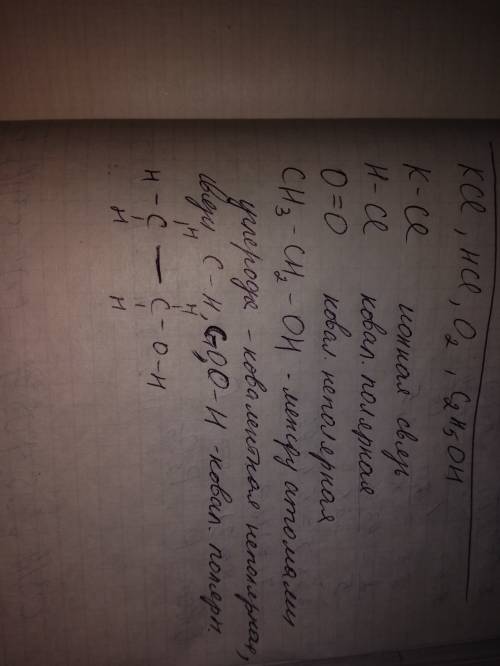 KCl, HCl, O2, C2H5OH
K - Cl ионная связь
H - Cl ковал. полярная
O = O ковал. неполярная
CH3 - CH2 - OH - между атомами
углерода - ковалентная неполярная,
связи C - H, C-O, O - H - ковал. полярн.
H H
H - C — C - O - H
H H